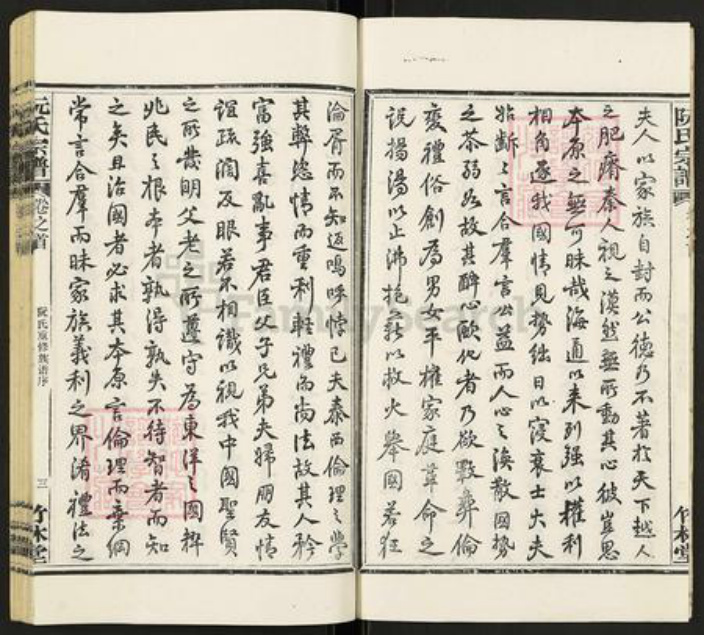 阮氏宗譜
卷之首
竹林堂
夫人以家族自封而公德乃不著於天下越人
之肥瘠秦人視之漠然無所動其心彼豈思
本原之無可昧哉海通以來列強以權利
相角逐我國情見勢絀日以寖衰士大夫
始斷斷言合羣言公益而人心之渙散國勢
之荼弱如故甚醉心歐化者乃欲斁彝倫
變禮俗創為男女平權家庭革命之
說揚湯以止沸抱薪以救火舉國若狂
淪胥而不知返嗚呼悖已夫泰西倫理之學
其弊恣情而重利輕禮而尚法故其人矜
富強喜亂事君臣父子兄弟夫婦朋友情
誼疏濶反眼若不相識以視我中國聖賢
之所發明父老之所遵守為東洋之國粹
兆民之根本者孰得孰失不待智者而知
之矣且治國者必求其本原言倫理而棄綱
常言合羣而昧家族義利之界淆禮法之
阮氏宗譜
卷之首
阮氏重修族譜序
三
竹林堂
FamilySearch